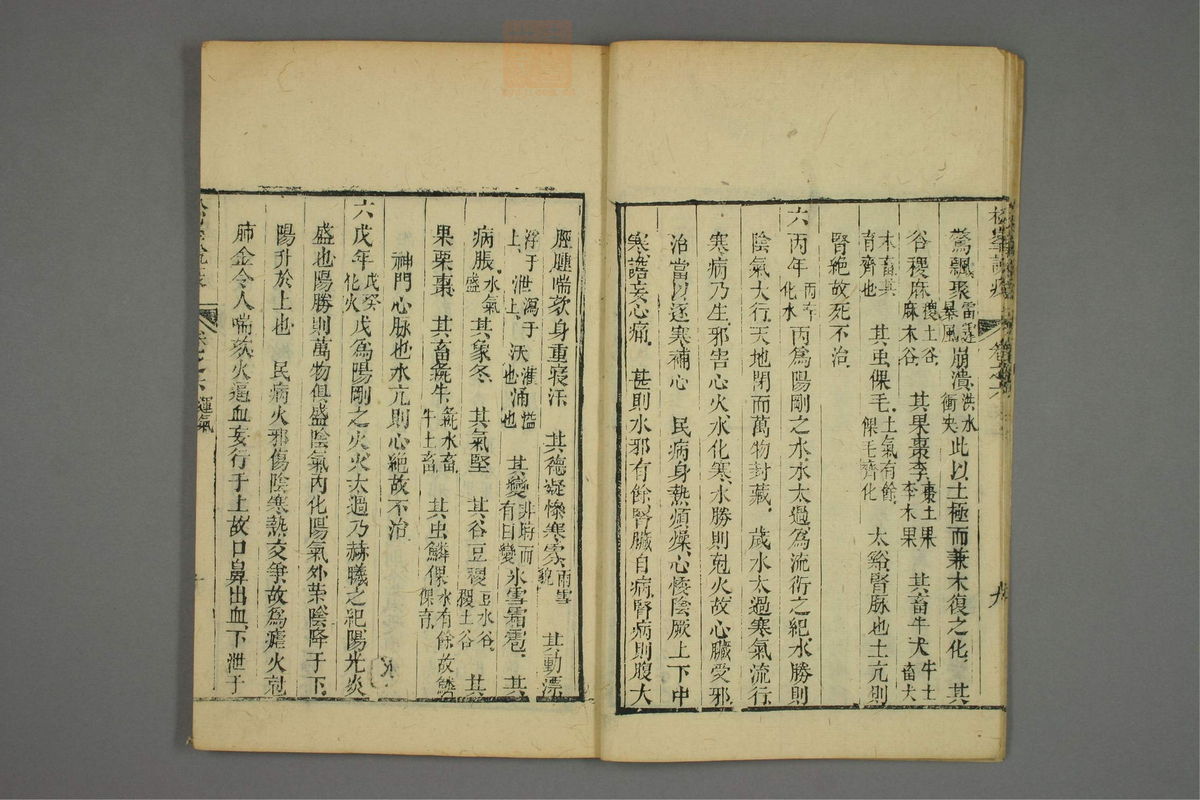 驚飄聚雷霆暴風崩潰洪水衝突此以土極而兼木復之化 其
谷稷麻稷土谷麻木谷 其果棗李棗土果李木果 其畜牛犬牛土畜犬
木畜其育齊也 其虫倮毛土氣有餘倮毛齊化 太谿腎脉也土亢則
腎絶故死不治
六丙年丙辛化水丙爲陽剛之水水太過爲流衍之紀水勝則
陰氣大行天地閉而萬物封藏 歲水太過寒氣流行
寒病乃生邪害心火水化寒水勝則剋火故心臟受邪
治當以逐寒補心 民病身熱煩燥心悸陰厥上下中
寒譫妄心痛 甚則水邪有餘腎臟自病腎病則腹大
脛腫喘欬身重寢汗 其德凝慘寒雰雨雪貌 其動漂
浮于上泄瀉于上沃灌也涌溢也 其變非時而有曰變氷雪霜雹 其
病脹水氣盛其象冬 其氣堅 其谷豆稷豆水谷稷土谷 其
果栗棗 其畜彘牛彘水畜牛土畜 其虫鱗倮水有餘故鱗倮育
神門心脉也水亢則心絶故不治
六戊年戊癸化火戊爲陽剛之火火太過乃赫曦之紀陽光炎
盛也陽勝則萬物俱盛陰氣內化陽氣外榮陰降于下
陽升於上也 民病火邪傷陰寒熱交爭故爲瘧火剋
肺金令人喘欬火逼血妄行于上故口鼻出血下泄于
運氣